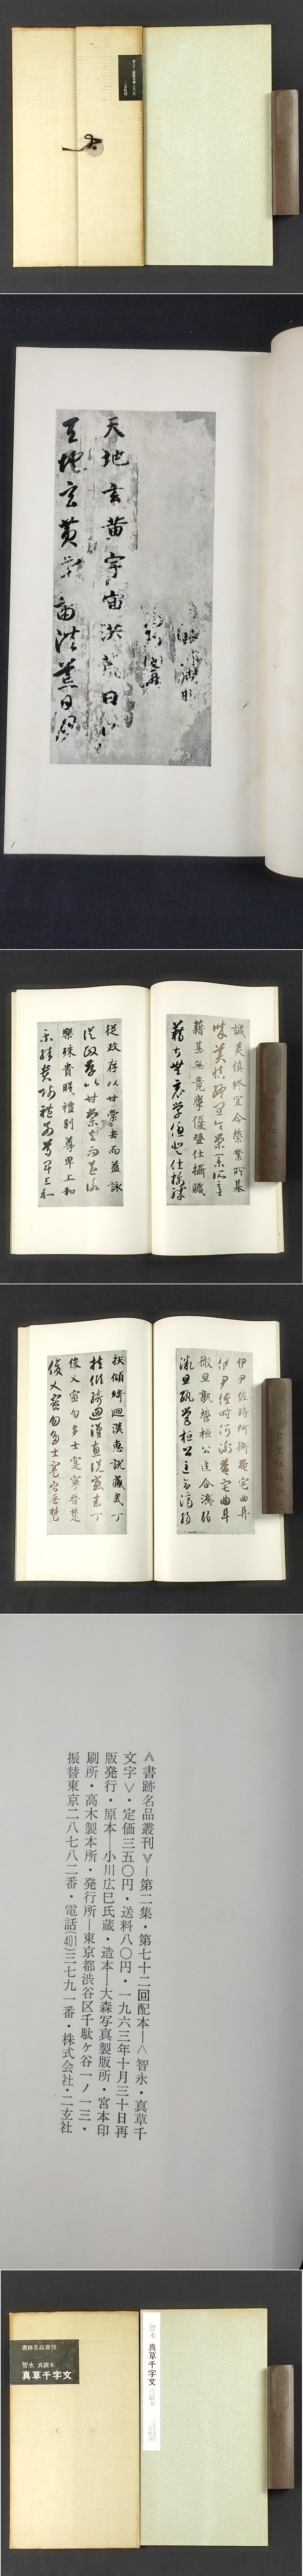 天地玄黄宇宙洪荒日
天地玄黄宇宙洪荒日
誠美慎終宜令榮業所基
誠美慎終宜令榮業所基
藉甚無竟學優登仕攝職
藉甚無竟學優登仕攝職
從政存以甘棠去而益詠
從政存以甘棠去而益詠
樂殊貴賤禮別尊卑上和
樂殊貴賤禮別尊卑上和
伊尹佐時阿衡奄宅曲阜
伊尹佐時阿衡奄宅曲阜
微旦孰營桓公匡合濟弱
微旦孰營桓公匡合濟弱
扶傾綺迴漢惠說感武丁
扶傾綺迴漢惠說感武丁
俊乂密勿多士寔寧晉楚
俊乂密勿多士寔寧晉楚
《書跡名品叢刊》―第二集・第七十二回配本―〈智永・真草千
文字〉・定価三五〇円・送料八〇円・一九六三年十月三十日再
版発行・原本―小川広巳氏蔵・造本―大森写真製版所・宮本印
刷所・高木製本所・発行所―東京都渋谷区千駄ケ谷一ノ一三・
振替東京二八七八二番・電話(401)三七九一番・株式会社・二玄社
書跡名品叢刊
智永 真蹟本
真草千字文
智永 真草千字文 真蹟本